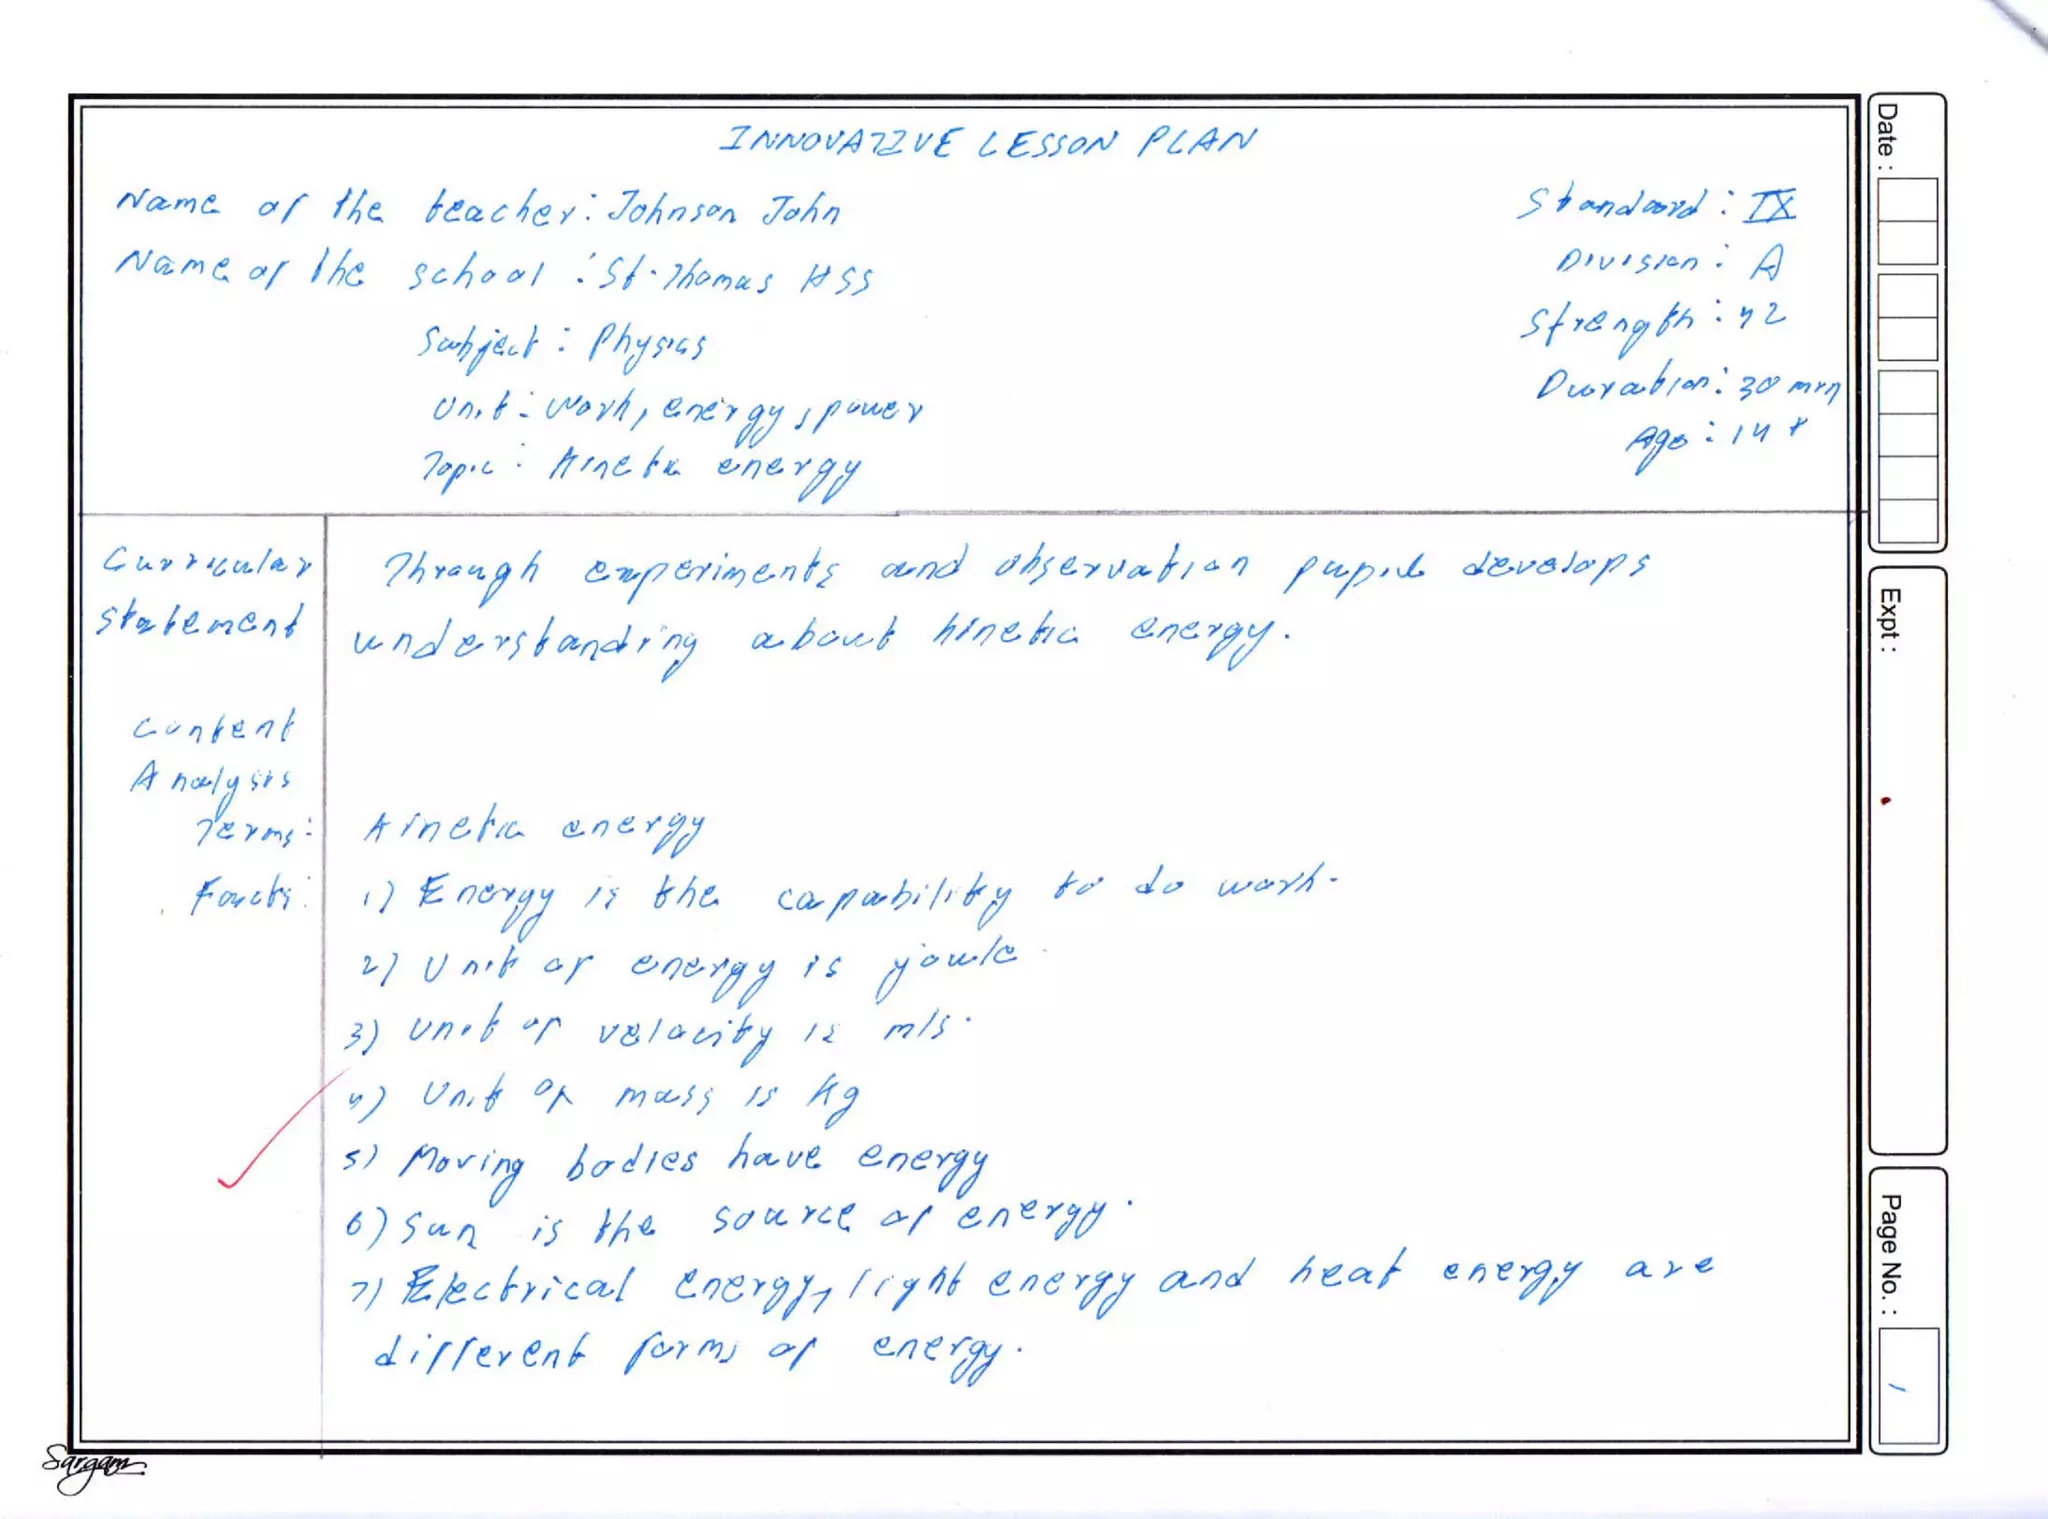 INNOVATIVE LESSON PLAN
Name of the teacher: Johnson John
Standard: IX
Name of the school: St. Thomas HSS
Division: A
Subject: Physics
Strength: 42
Unit: Work, energy, power
Duration: 30 min
Topic: Kinetic energy
Age: 14+
Curricular statement
Through experiments and observation pupil develops
understanding about kinetic energy.
Content
Analysis
Terms: Kinetic energy
Facts: 1) Energy is the capability to do work.
2) Unit of energy is joule.
3) Unit of velocity is m/s.
4) Unit of mass is kg
5) Moving bodies have energy
6) Sun is the source of energy.
7) Electrical energy, light energy and heat energy are
different forms of energy.
Date:
Expt:
Page No.: 1
Sargam